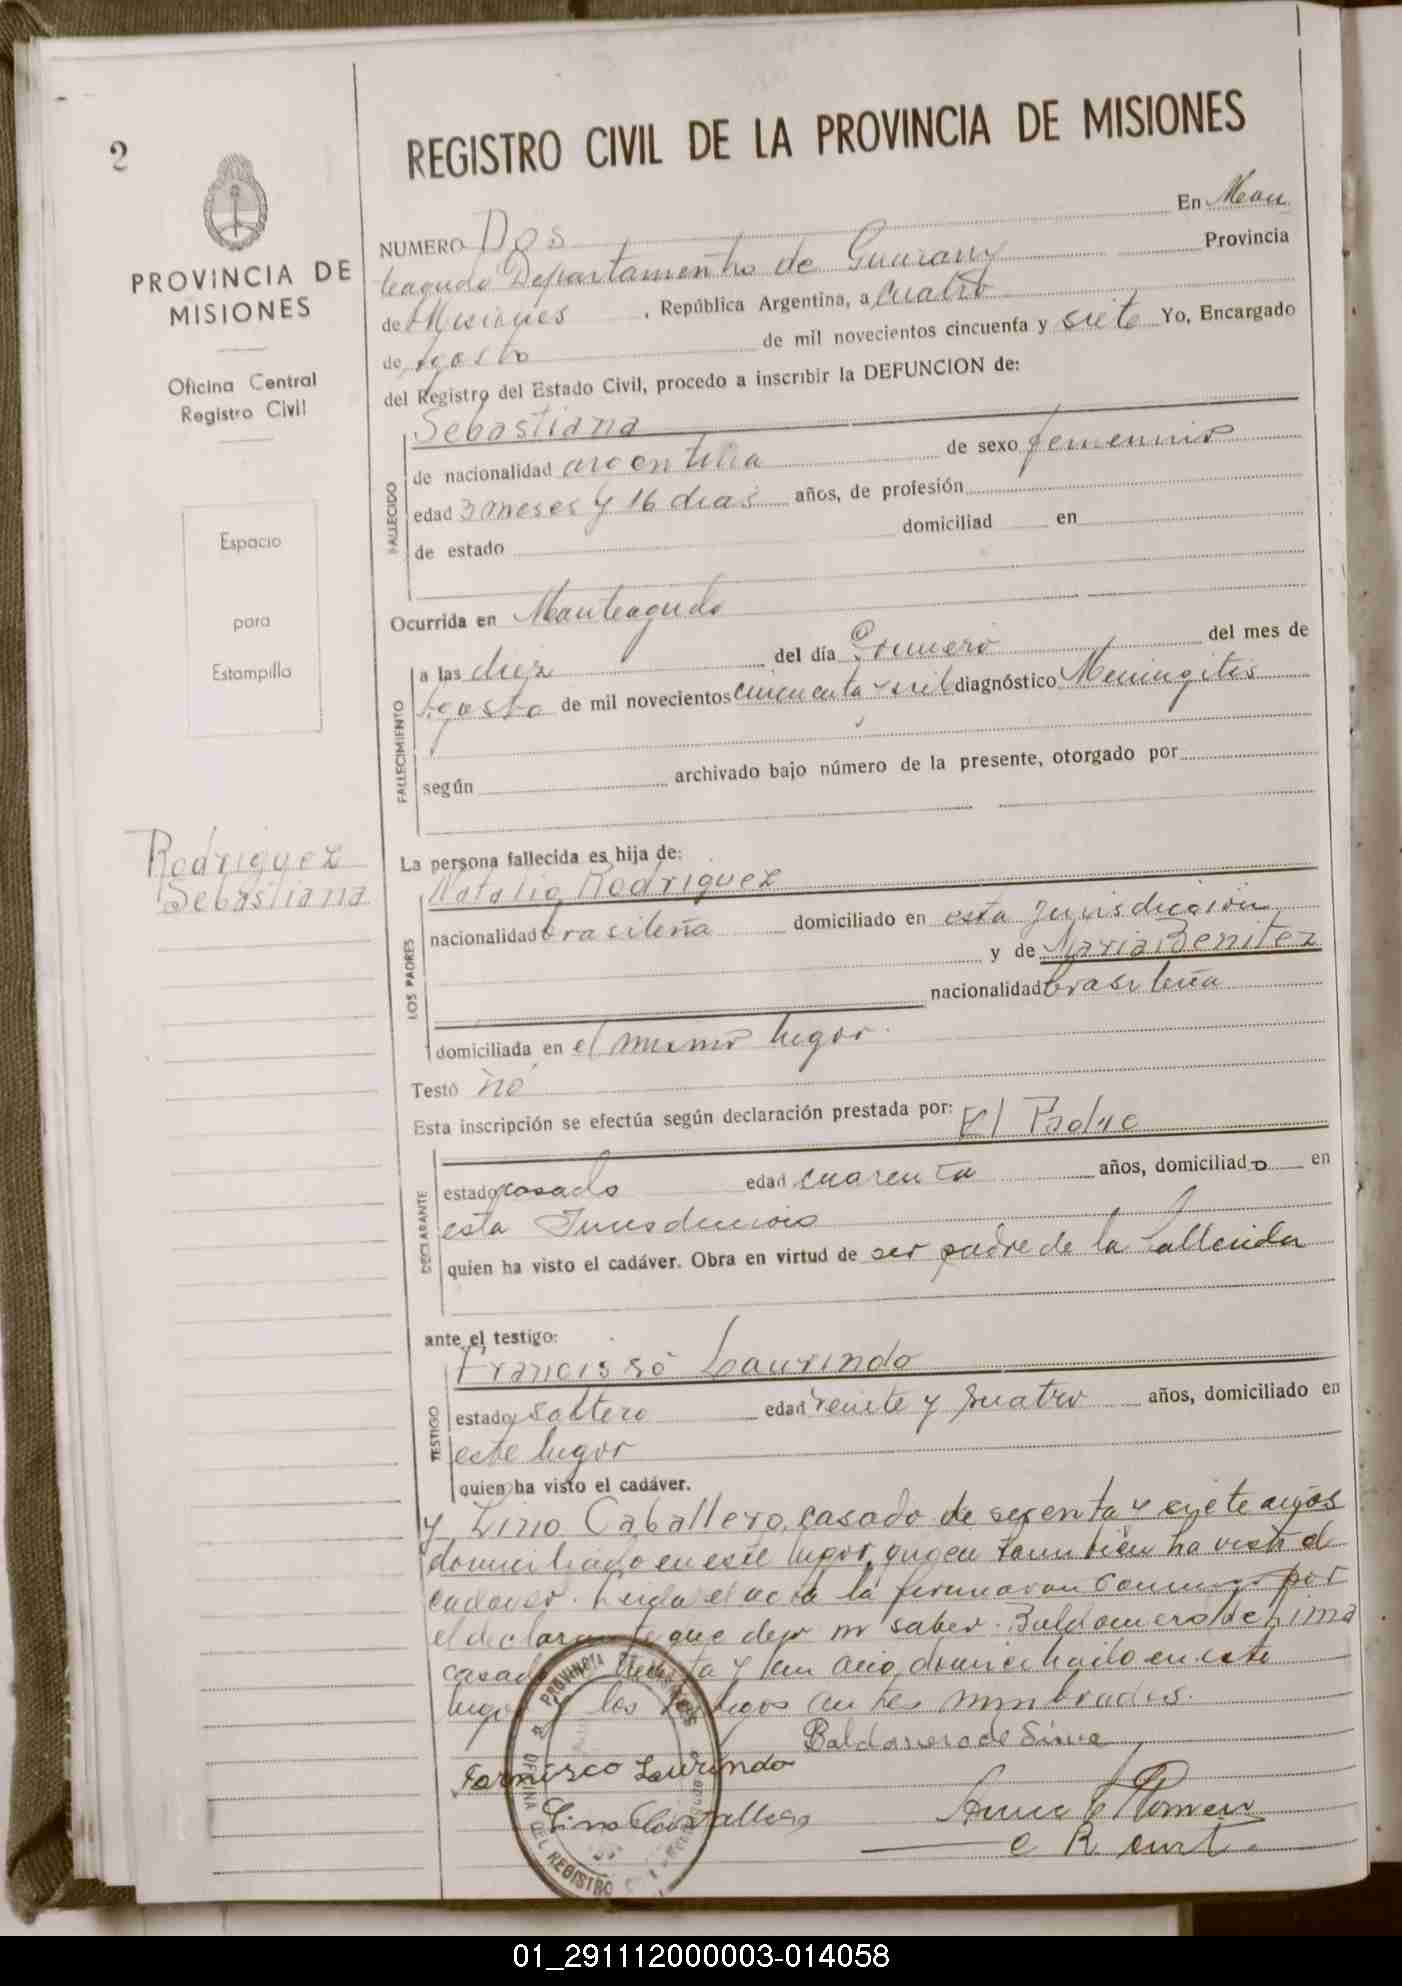 2
PROVINCIA DE
MISIONES
Oficina Central
Registro Civil
Espacio
para
Estampilla
Rodriguez
Sebastiana
REGISTRO CIVIL DE LA PROVINCIA DE MISIONES
NUMERO Dos En Mon
teagudo Departamento de Guarany Provincia
de Misiones, República Argentina, a cuatro
de Agosto de mil novecientos cincuenta y siete Yo, Encargado
del Registro del Estado Civil, procedo a inscribir la DEFUNCION de:
Sebastiana
FALLECIDO
de nacionalidad argentina de sexo femenino
edad 3 meses y 16 dias años, de profesión
de estado domiciliad en
Ocurrida en Monteagudo
FALLECIMIENTO
a las diez del día Primero del mes de
Agosto de mil novecientos cincuenta y siete diagnóstico Meningitis
según archivado bajo número de la presente, otorgado por
La persona fallecida es hija de:
LOS PADRES
Natalio Rodriguez
nacionalidad brasileña domiciliado en esta Jurisdiccion
y de Maria Benitez
nacionalidad brasileña
domiciliada en el mismo lugar.
Testó no
Esta inscripción se efectúa según declaración prestada por: El Padre
DECLARANTE
estado casado edad cuarenta años, domiciliado en
esta Jurisdiccion
quien ha visto el cadáver. Obra en virtud de ser padre de la fallecida
ante el testigo:
TESTIGO
Francisso Laurindo
estado soltero edad veinte y cuatro años, domiciliado en
este lugar
quien ha visto el cadáver.
y Lino Caballero, casado de sesenta y siete años
domiciliado en este lugar, quien tambien ha visto el
cadaver. Leida el acta la firmaron conmigo por
el declarante que dejo no saber. Baldomero de Lima
casado treinta y un año, domiciliado en este
lugar los testigos antes nombrados.
Baldomero de Lima
Farnsizco Laurindo
Lino Caballero
PROVINCIA DE MISIONES
OFICINA DEL REGISTRO
01_291112000003-014058